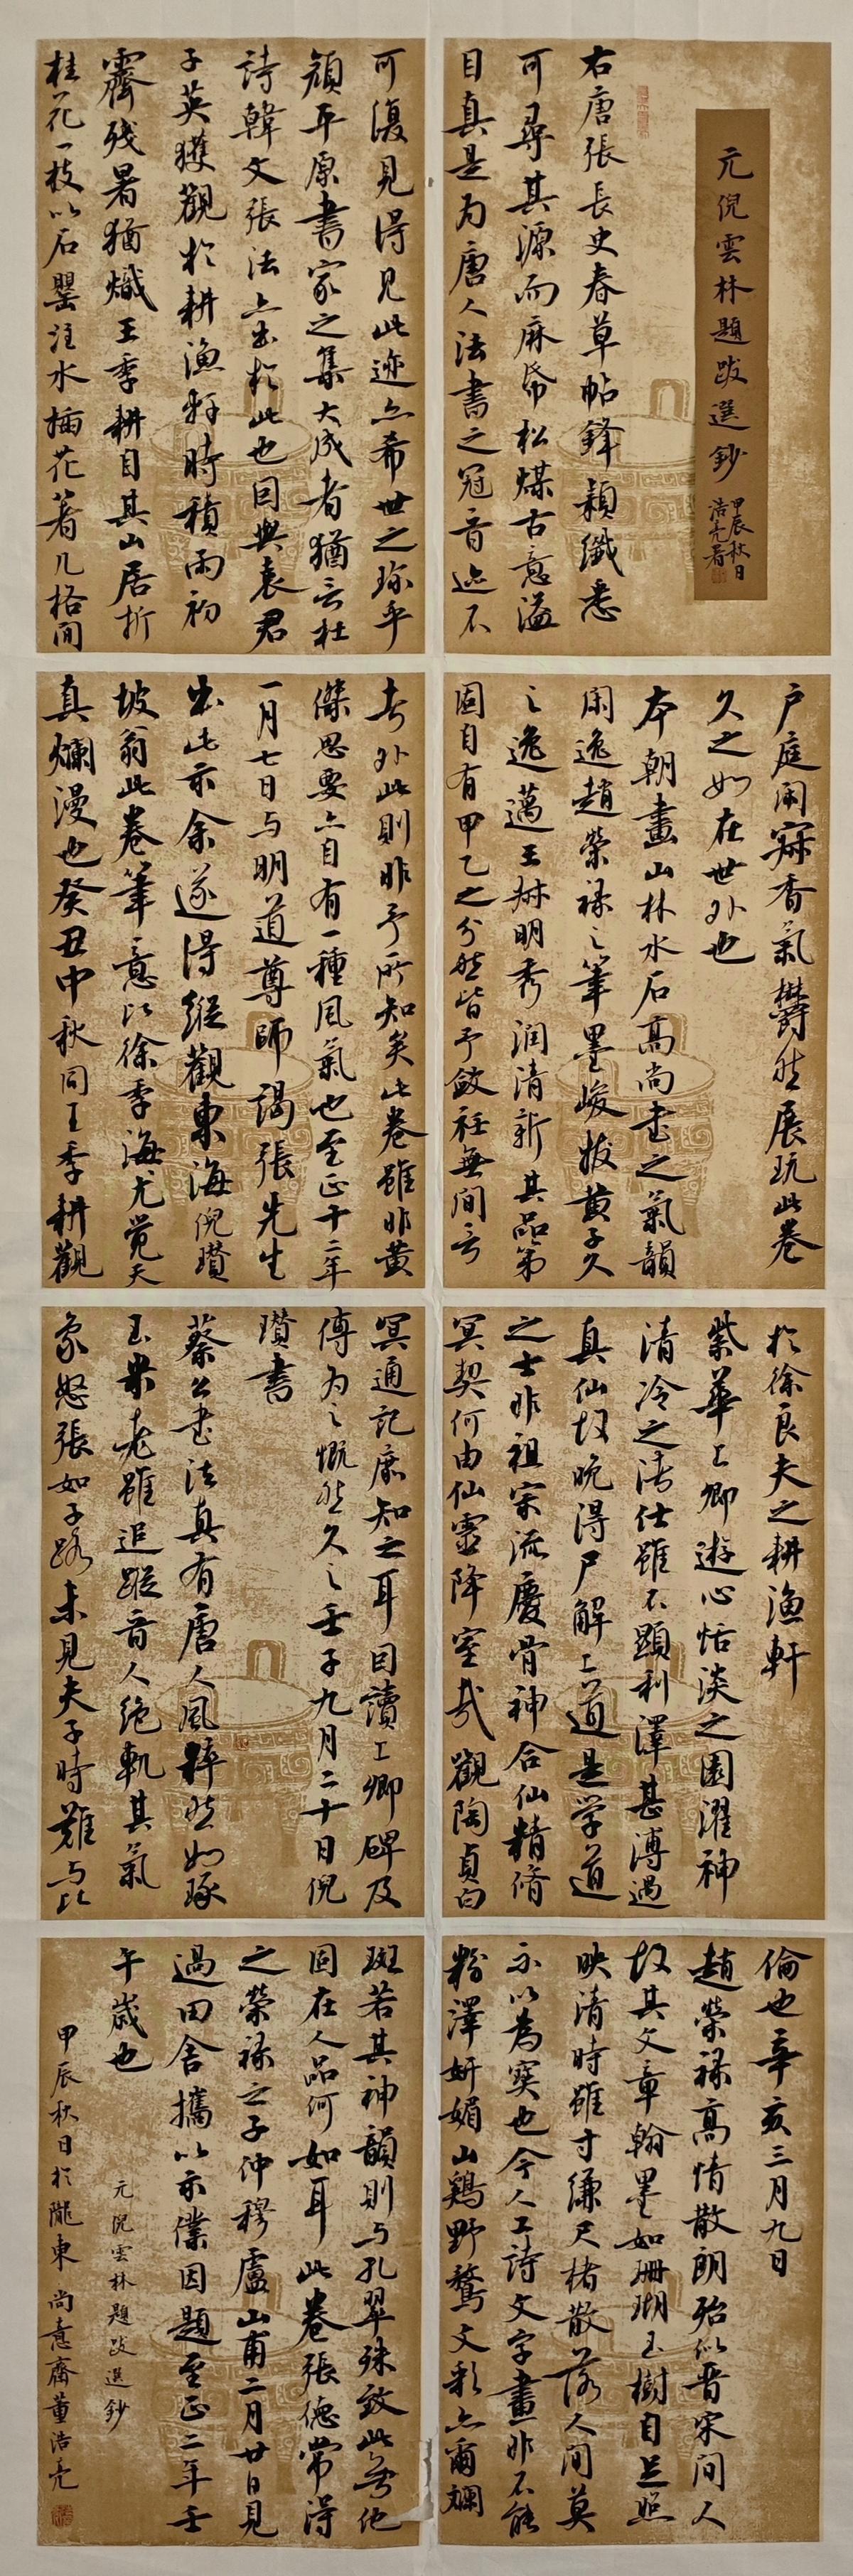 元倪雲林題跋選鈔
甲辰秋日
浩亮署
右唐張長史春草帖鋒穎纖悉
可尋其源而麻帋松煤古意溢
目真是為唐人法書之冠晉迹不
可復見得見此迹亦希世之珍乎
顏平原書家之集大成者猶言杜
詩韓文張法亦出於此也因與袁君
子英獲觀於耕漁軒時積雨初
霽残暑猶熾王季耕自其山居折
桂花一枝以石罌注水插花着几格間
户庭闃寂香氣欝然展玩此卷
久之如在世外也
本朝畫山林水石高尚書之氣韻
閑逸趙榮祿之筆墨峻拔黄子久
之逸邁王叔明秀润清新其品第
固自有甲乙之分然皆予斂衽無間言
者外此則非予所知矣此卷雖非黄
傑思要亦自有一種風氣也至正十二年
一月七日与明道尊師謁張先生
出此示余遂得縱觀東海倪瓚
坡翁此卷筆意比徐季海尤覚天
真爛漫也癸丑中秋同王季耕觀
於徐良夫之耕漁軒
紫華上卿遊心恬淡之園濯神
清冷之涛仕雖不顯利澤甚溥遇
真仙於晚得尸解上道是学道
之士非祖宗流慶骨神合仙精脩
冥契何由仙靈降室哉觀陶貞白
冥通記庶知之耳因讀上卿碑及
傳为之慨然久之壬子九月二十日倪
瓚書
蔡公書法真有唐人風粹然如琢
玉米老雖追蹤晉人绝軌其氣
象怒張如子路未見夫子時難与比
倫也辛亥三月九日
趙榮祿高情散朗殆似晋宋间人
故其文章翰墨如珊瑚玉樹自足照
映清時雖寸縑尺楮散落人间莫
不以為寶也今人工詩文字畫非不能
粉澤妍媚山鷄野鶩文彩亦爾斓
斑若其神韻則与孔翠殊致此無他
固在人品何如耳此卷張德常得
之榮祿之子仲穆盧山甫二月廿日見
過田舍攜以示僕因題至正二年壬
午歲也
元倪雲林題跋選鈔
甲辰秋日於隴東尚意齋董浩亮